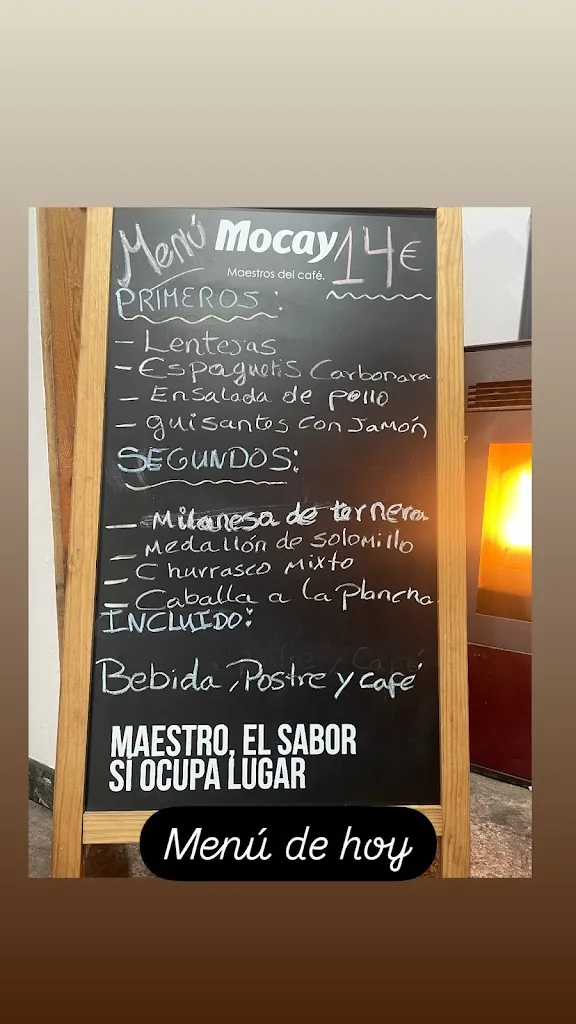 Menú Mocay 14€
Maestros del café.
PRIMEROS:
- Lentejas
- Espaguetis Carbonara
- Ensalada de pollo
- guisantes con Jamón
SEGUNDOS:
- Milanesa de ternera
- Medallón de solomillo
- Churrasco Mixto
- Caballa a la plancha
INCLUIDO:
Bebida, Postre y café
MAESTRO, EL SABOR
SÍ OCUPA LUGAR
Menú de hoy